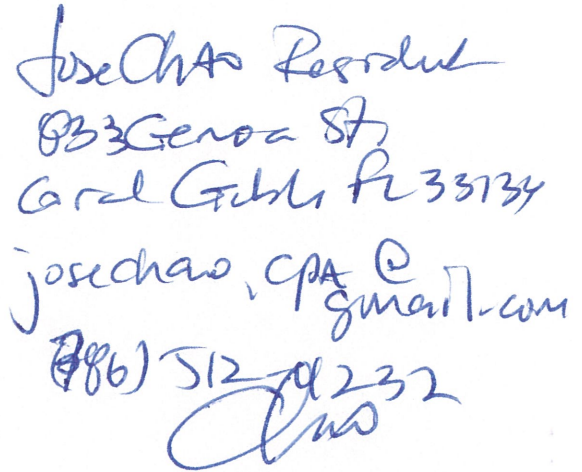 Jose Chao Resident
833 Genoa St,
Coral Gables FL 33134
josechao.CPA@
gmail.com
(786) 512-4232
Chao